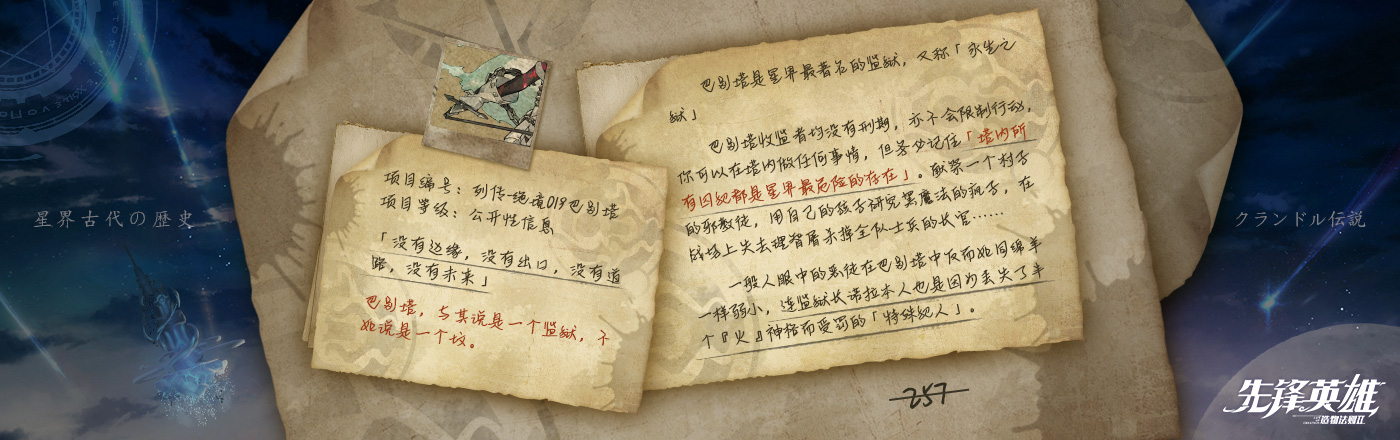 星界古代の歴史
项目编号：列传-绝境019巴别塔
项目等级：公开性信息
「没有边缘，没有出口，没有道
路，没有未来」
巴别塔，与其说是一个监狱，不
如说是一个坟。
巴别塔是星界最著名的监狱，又称「永生之
狱」
巴别塔收监者均没有刑期，亦不会限制行动，
你可以在塔内做任何事情，但务必记住「塔内所
有囚犯都是星界最危险的存在」。献祭一个村子
的邪教徒，用自己的孩子研究黑魔法的疯子，在
战场上失去理智屠杀掉全队士兵的长官……
一般人眼中的恶徒在巴别塔中反而如同绵羊
一样弱小，连监狱长诺拉本人也是因为丢失了半
个『火』神格而受罚的「特殊犯人」。
257
クランドル伝説
先锋英雄
造物法则II